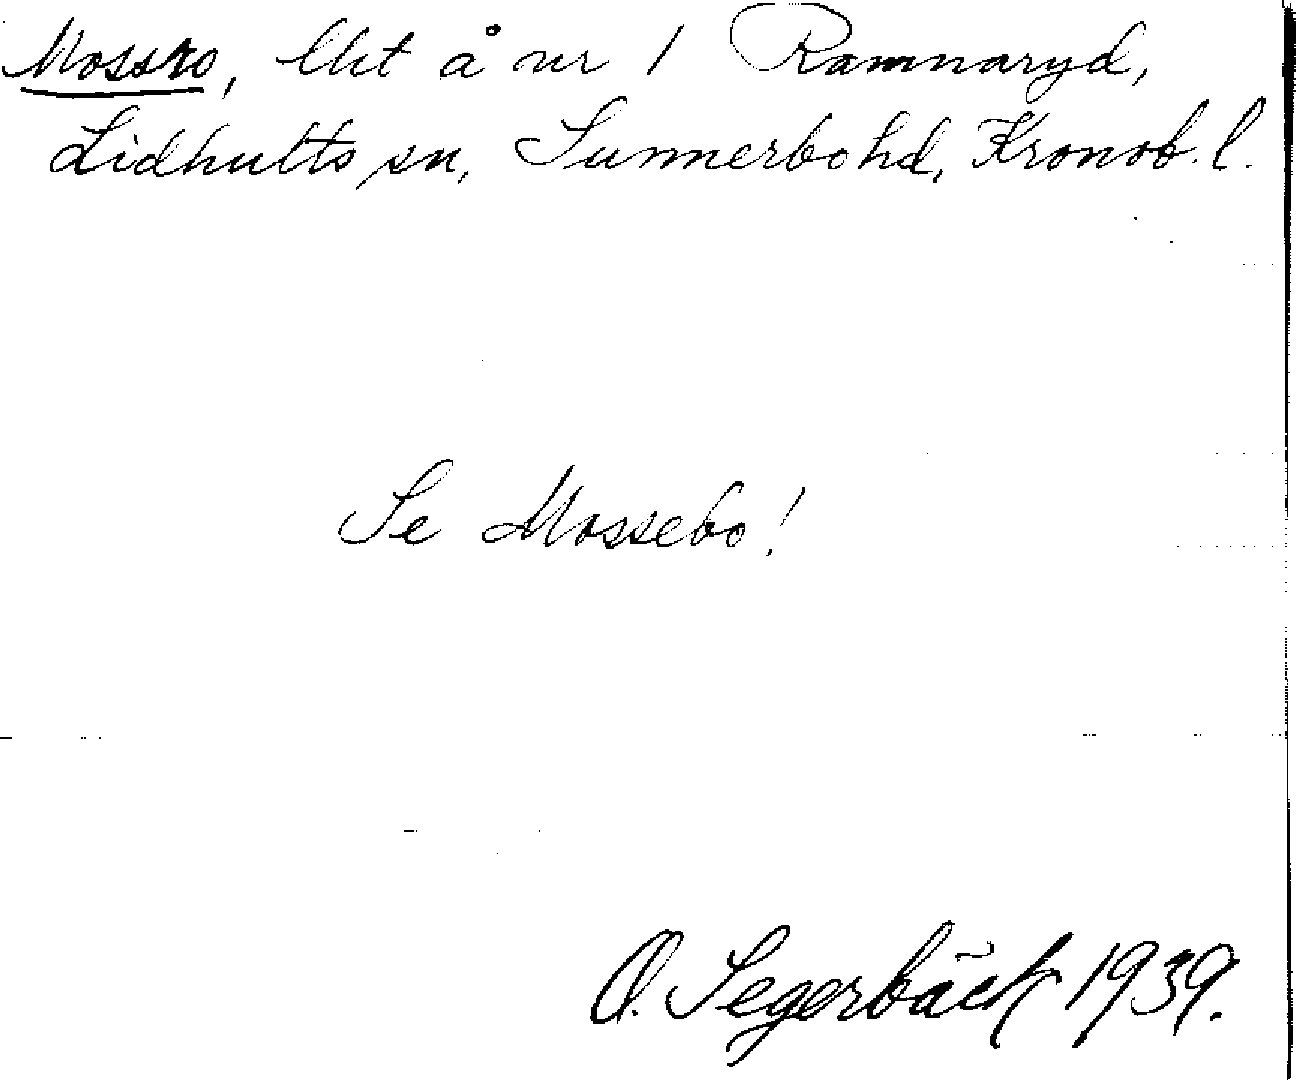 Mossbo, lht å nr 1 Ramnaryd,
Lidhults sn, Sunnerbo hd, Kronob. l.
Se Mossebo!
O. Segerbäck 1939.